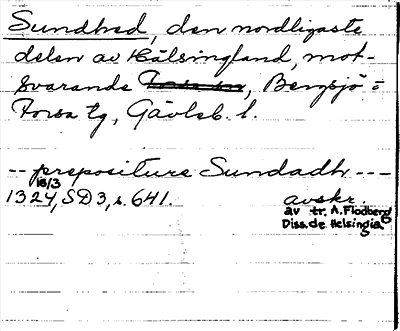 Sundhed, den nordligaste
delen av Hälsingland, mot-
svarande Bergsjö o
Forsa tg, Gävleb. l.
-- prepositure Sundadh ---
18/3
1324, SD3, s. 641. avskr.
av tr. A. Flodberg
Diss. de Helsingia